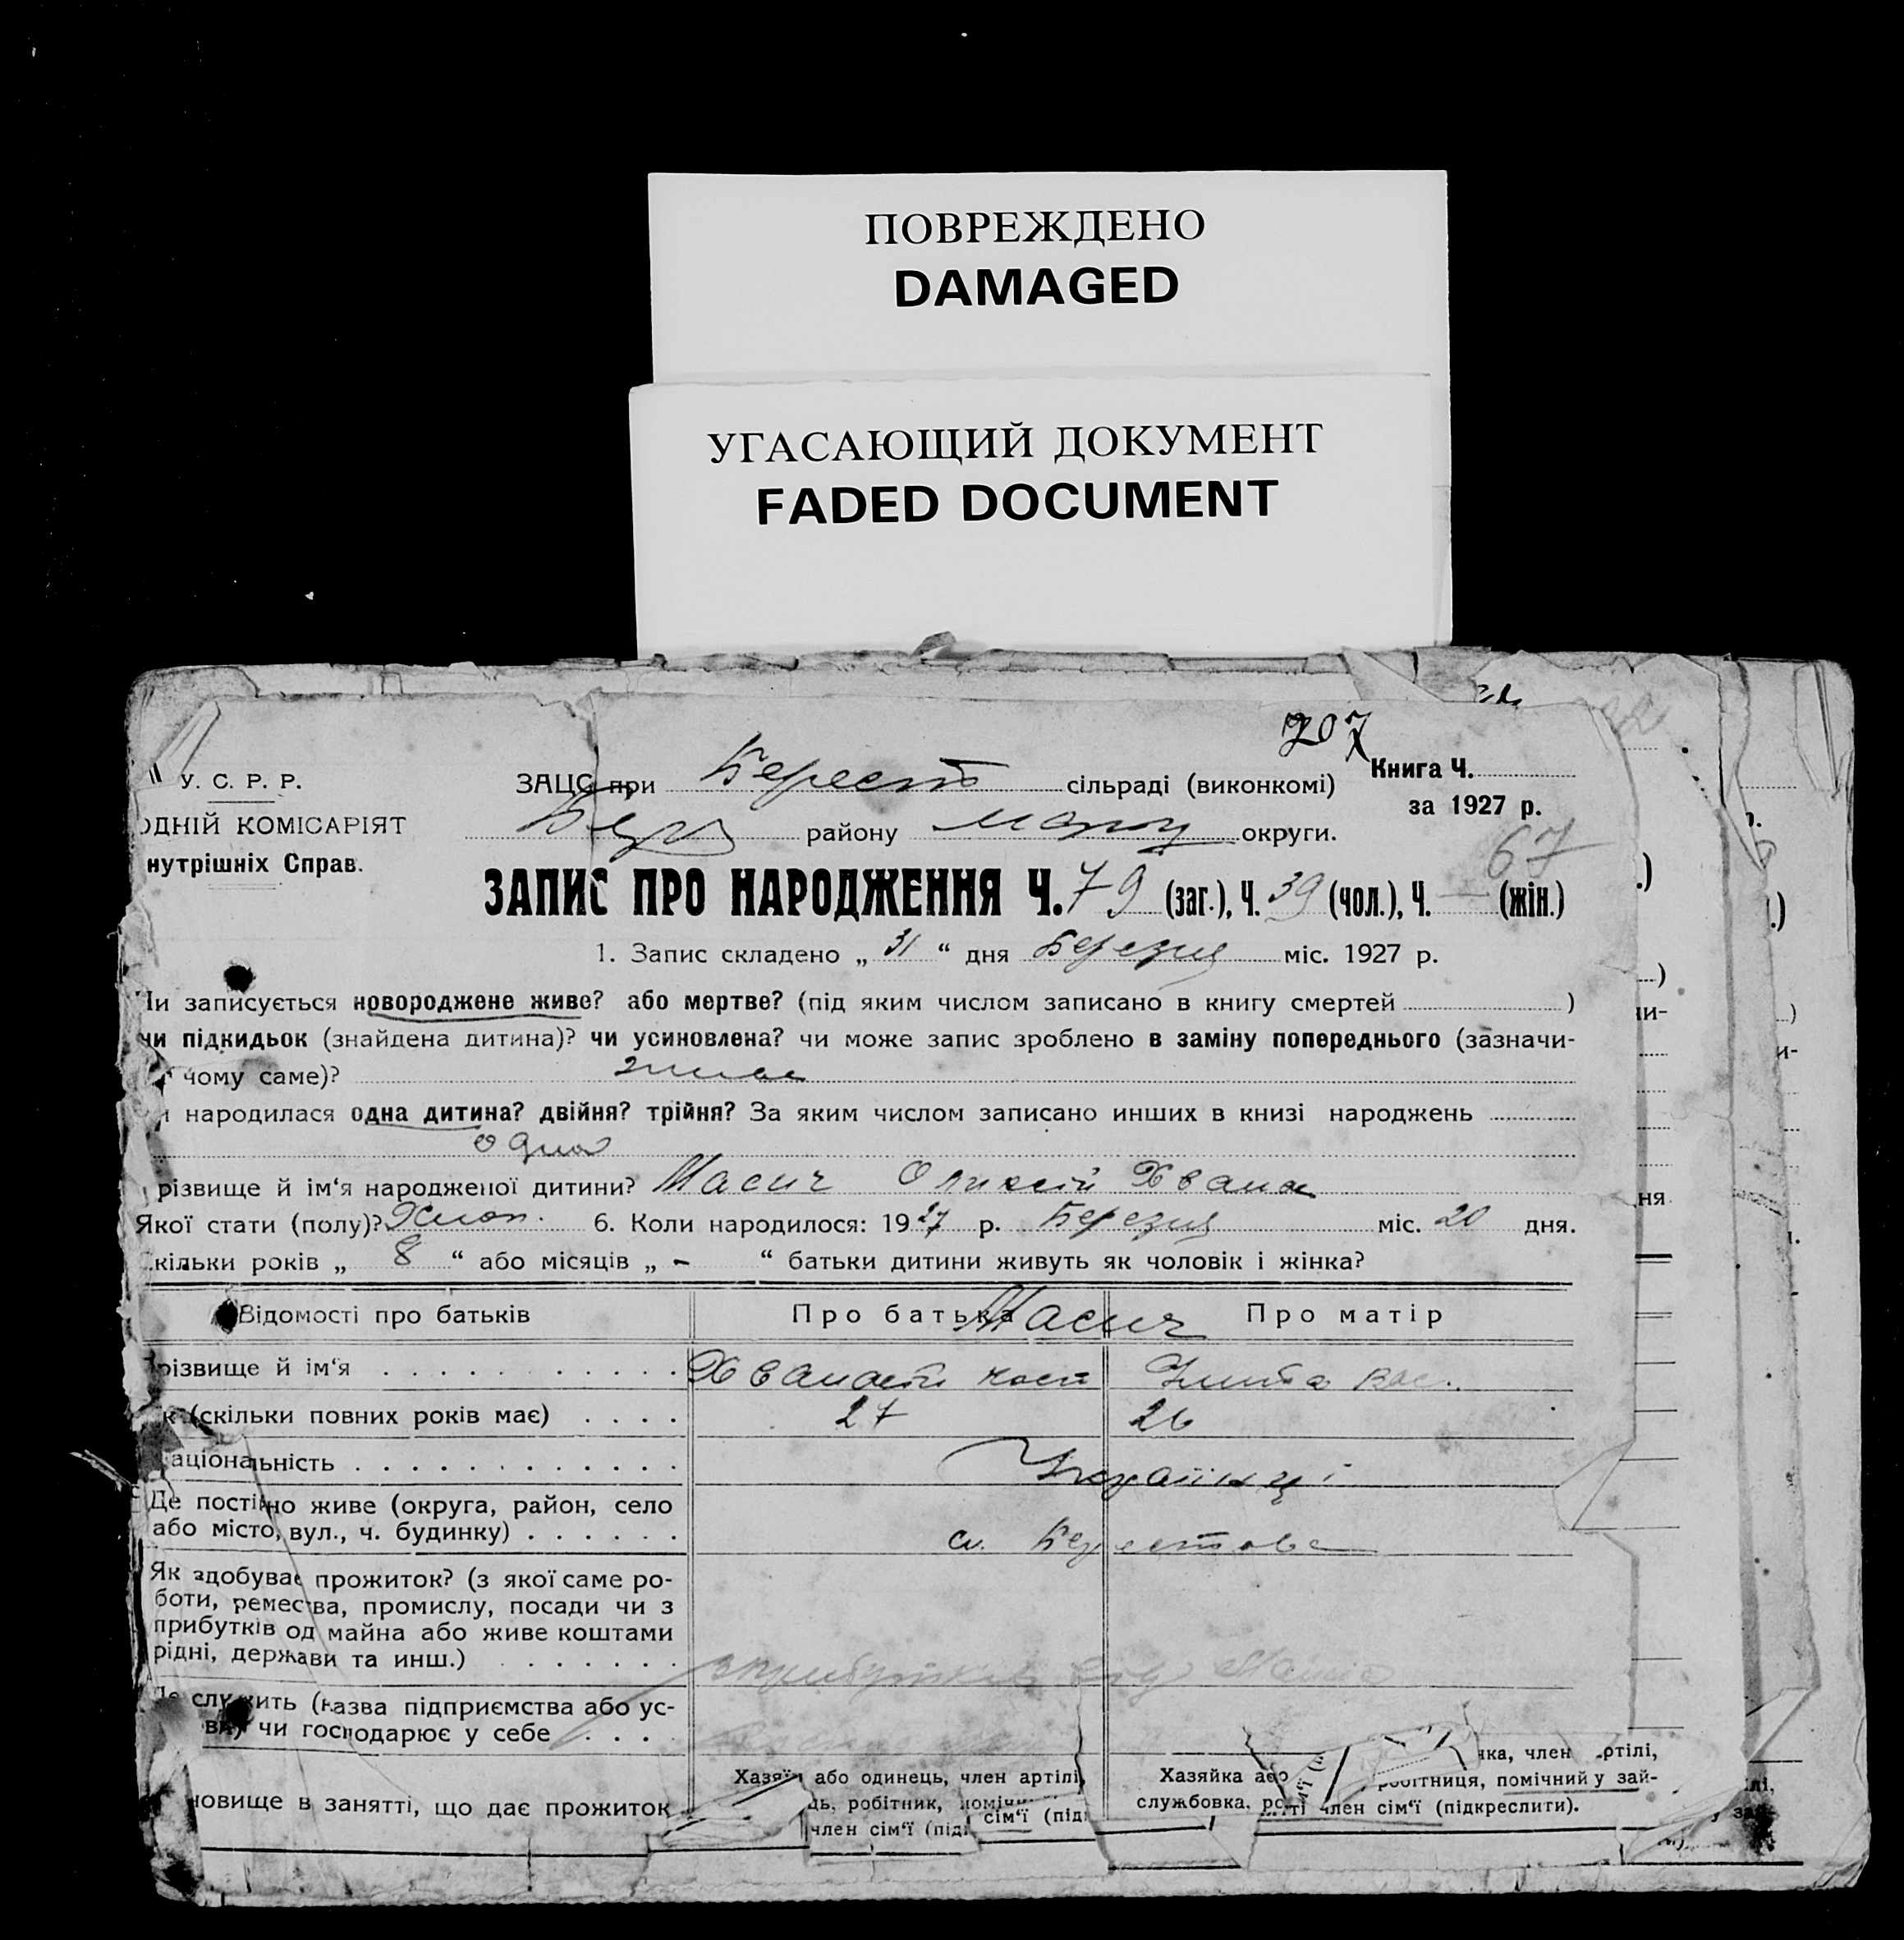 ПОВРЕЖДЕНО
DAMAGED
УГАСАЮЩИЙ ДОКУМЕНТ
FADED DOCUMENT
207
У. С. Р. Р.
ЗАЦС при Берест сільраді (виконкомі)
Книга Ч.
за 1927 р.
ОДНІЙ КОМІСАРІЯТ
району округи.
нутрішніх Справ.
67
ЗАПИС ПРО НАРОДЖЕННЯ Ч. 79 (заг.), Ч. 39 (чол.), Ч. — (жін.)
1. Запис складено „ 31 “ дня Березня міс. 1927 р.
Чи записується новороджене живе? або мертве? (під яким числом записано в книгу смертей )
чи підкидьок (знайдена дитина)? чи усиновлена? чи може запис зроблено в заміну попереднього (зазначи-
чому саме)? живе
народилася одна дитина? двійня? трійня? За яким числом записано инших в книзі народжень
одна
різвище й ім‘я народженої дитини? Масич Оликсій Хвана
Якої стати (полу)? Хлоп. 6. Коли народилося: 1927 р. Березня міс. 20 дня.
кільки років „ 8 “ або місяців „ - “ батьки дитини живуть як чоловік і жінка?
Відомості про батьків Про батька Про матір
Масич
різвище й ім‘я Хванасій Кост Улита Вас.
к (скільки повних років має) 27 26
аціональність Українці
Де постійно живе (округа, район, село
або місто, вул., ч. будинку) сл. Берестове
Як здобуває прожиток? (з якої саме ро-
боти, ремества, промислу, посади чи з
прибутків од майна або живе коштами
рідні, держави та инш.) з прибутків від Майна
Де служить (назва підприємства або ус-
ви) чи господарює у себе
новище в занятті, що дає прожиток
Хазяїн або одинець, член артілі,
ць, робітник, поміч
член сім‘ї (під
сім‘ї (під
Хазяйка або нка, член ртілі,
службовка, робітниця, помічний у зай-
член сім‘ї (підкреслити).